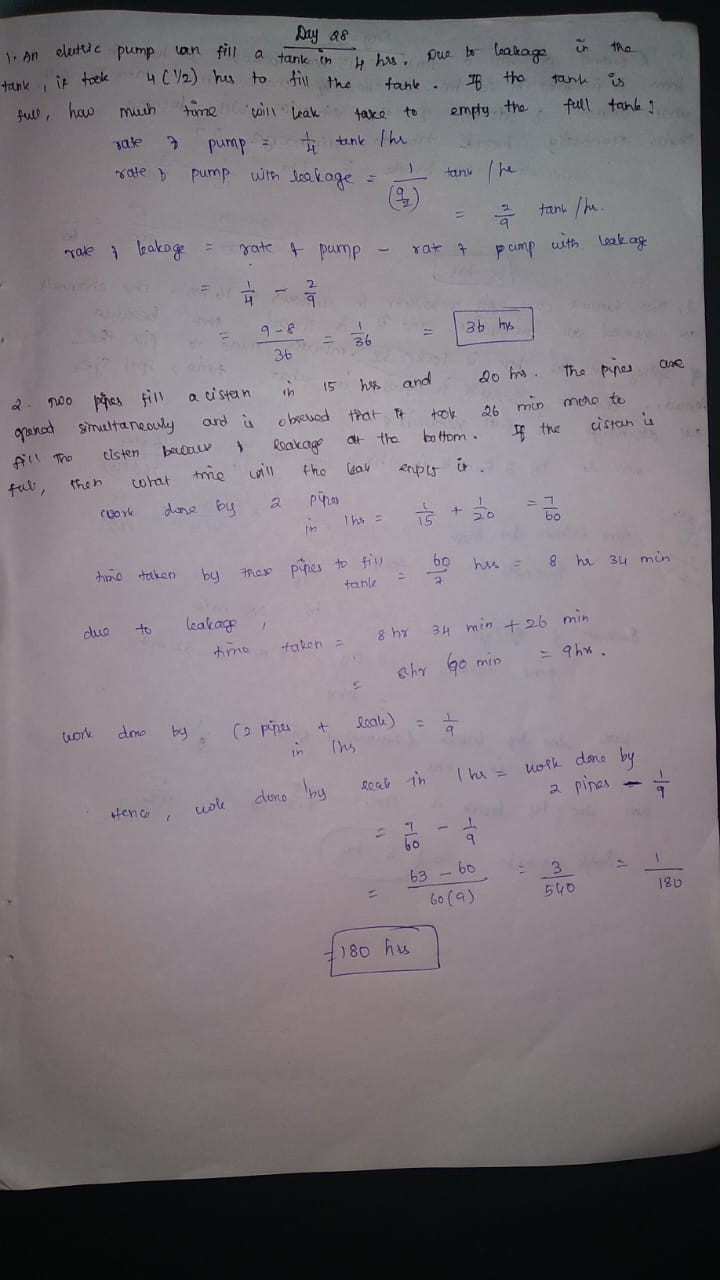 Day 28
1. An electric pump can fill a tank in 4 hrs. Due to leakage in the
tank, it took 4(1/2) hrs to fill the tank. If the tank is
full, how much time will leak take to empty the full tank?
rate of pump = 1/4 tank/hr
rate of pump with leakage = 1/(9/2) tank/hr
= 2/9 tank/hr.
rate of leakage = rate of pump - rate of pump with leakage
= 1/4 - 2/9
= 9-8/36 = 1/36 = 36 hrs
2. Two pipes fill a cistern in 15 hrs and 20 hrs. The pipes are
opened simultaneously and is observed that it took 26 min more to
fill the cisten because of leakage at the bottom. If the cistern is
full, then what time will the leak empty it.
work done by 2 pipes
in 1hs = 1/15 + 1/20 = 7/60
time taken by these pipes to fill
tank = 60/7 hrs = 8 hr 34 min
due to leakage,
time taken = 8 hr 34 min + 26 min
= 8hr 60 min = 9hrs.
work done by (2 pipes + leak) = 1/9
in 1hs
Hence, work done by leak in 1 hs = work done by
2 pipes - 1/9
= 7/60 - 1/9
= 63 - 60/60(9) = 3/540 = 1/180
= 180 hrs